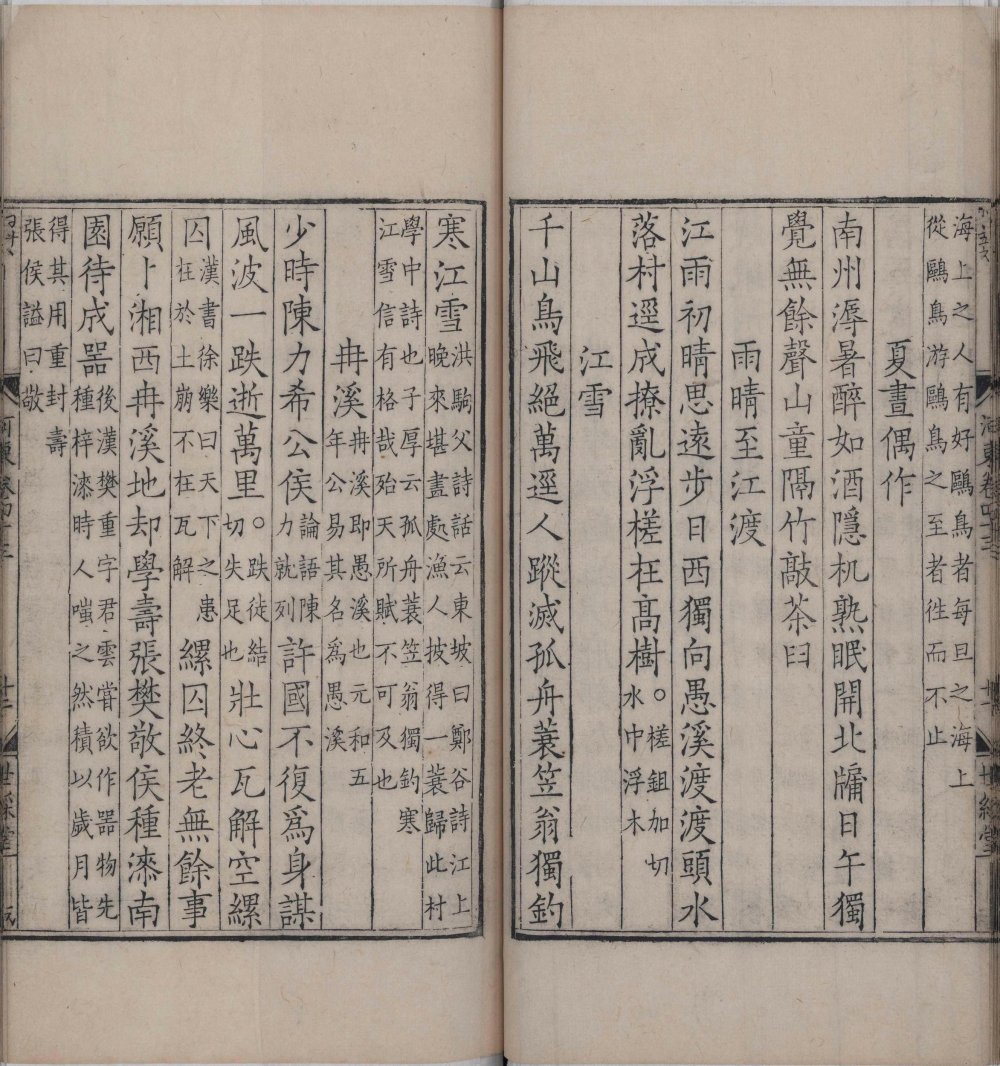 海上之人有好鷗鳥者每旦之海上
從鷗鳥游鷗鳥之至者徃而不止
夏晝偶作
南州溽暑醉如酒隱机熟眠開北牖日午獨
覺無餘聲山童隔竹敲茶臼
雨晴至江渡
江雨初晴思遠步日西獨向愚溪渡渡頭水
落村逕成撩亂浮槎在高樹。槎鉏加切
水中浮木
江雪
千山鳥飛絕萬逕人蹤滅孤舟蓑笠翁獨釣
寒江雪洪駒父詩話云東坡曰鄭谷詩江上
晚來堪畫處漁人披得一蓑歸此村
學中詩也子厚云孤舟蓑笠翁獨釣寒
江雪信有格哉殆天所賦不可及也
冉溪冉溪即愚溪也元和五
年公易其名爲愚溪
少時陳力希公侯論語陳
力就列許國不復爲身謀
風波一跌逝萬里。跌徒結
切失足也壯心瓦解空縲
囚漢書徐樂曰天下之患
在於土崩不在瓦解縲囚終老無餘事
願卜湘西冉溪地却學壽張樊敬侯種漆南
園待成噐後漢樊重字君雲嘗欲作噐物先
種梓漆時人嗤之然積以歲月皆
得其用重封壽
張侯謚曰敬
河東卷四十三
十二
世綵堂